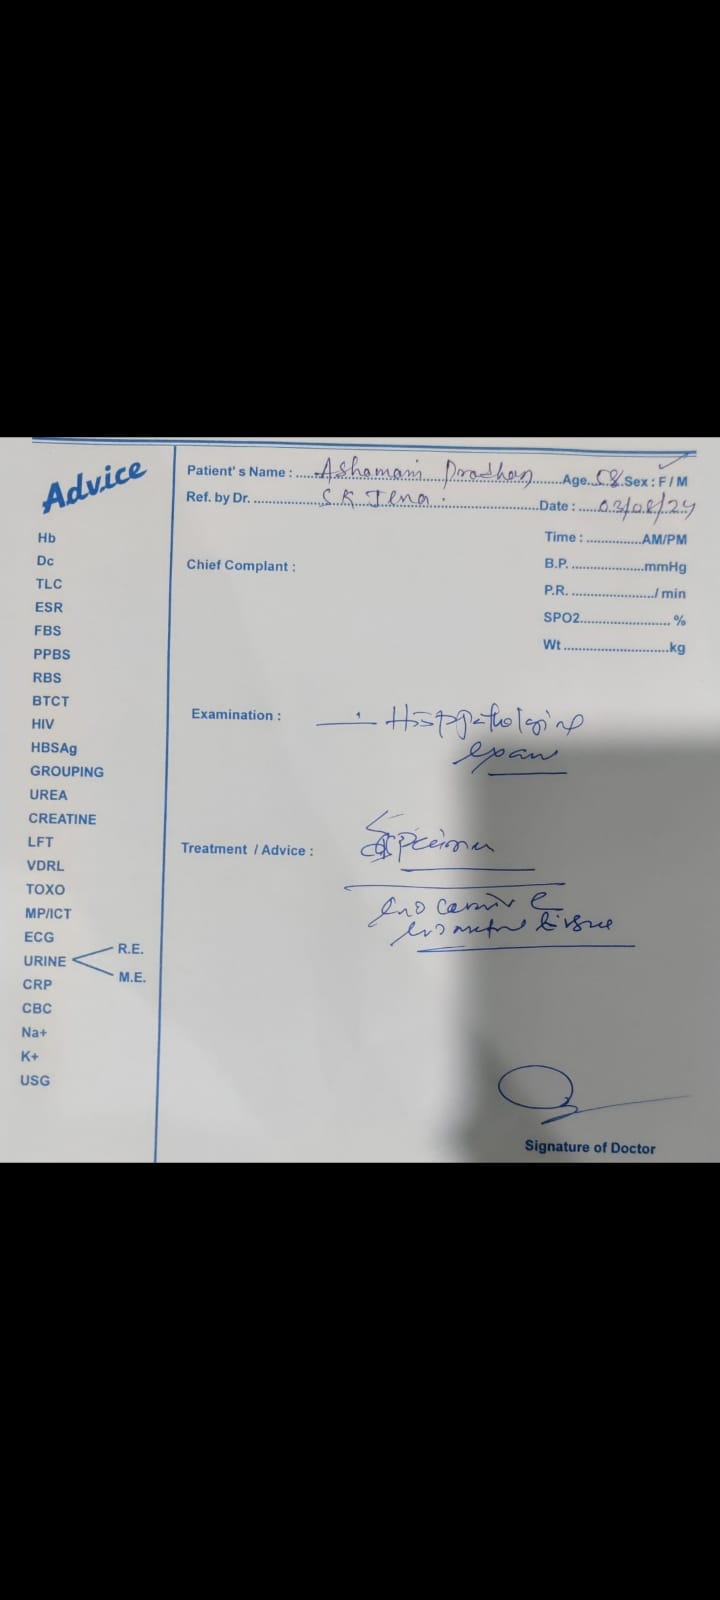 Advice
Patient's Name : Ashamani Pradhan Age. 58 Sex : F / M
Ref. by Dr. S.K Jena. Date : 03/08/24
Time : AM/PM
B.P. mmHg
P.R. / min
SPO2 %
Wt kg
Chief Complant :
Examination :
exam
Treatment / Advice :
Specimen
tissue
Hb
Dc
TLC
ESR
FBS
PPBS
RBS
BTCT
HIV
HBSAg
GROUPING
UREA
CREATINE
LFT
VDRL
TOXO
MP/ICT
ECG
URINE R.E.
M.E.
CRP
CBC
Na+
K+
USG
Signature of Doctor